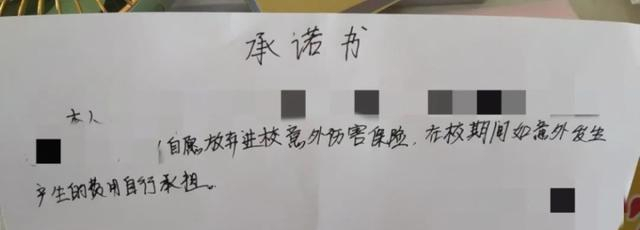 承诺书
本人
(自愿放弃进校意外伤害保险，在校期间如意外发生
产生的费用自行承担。